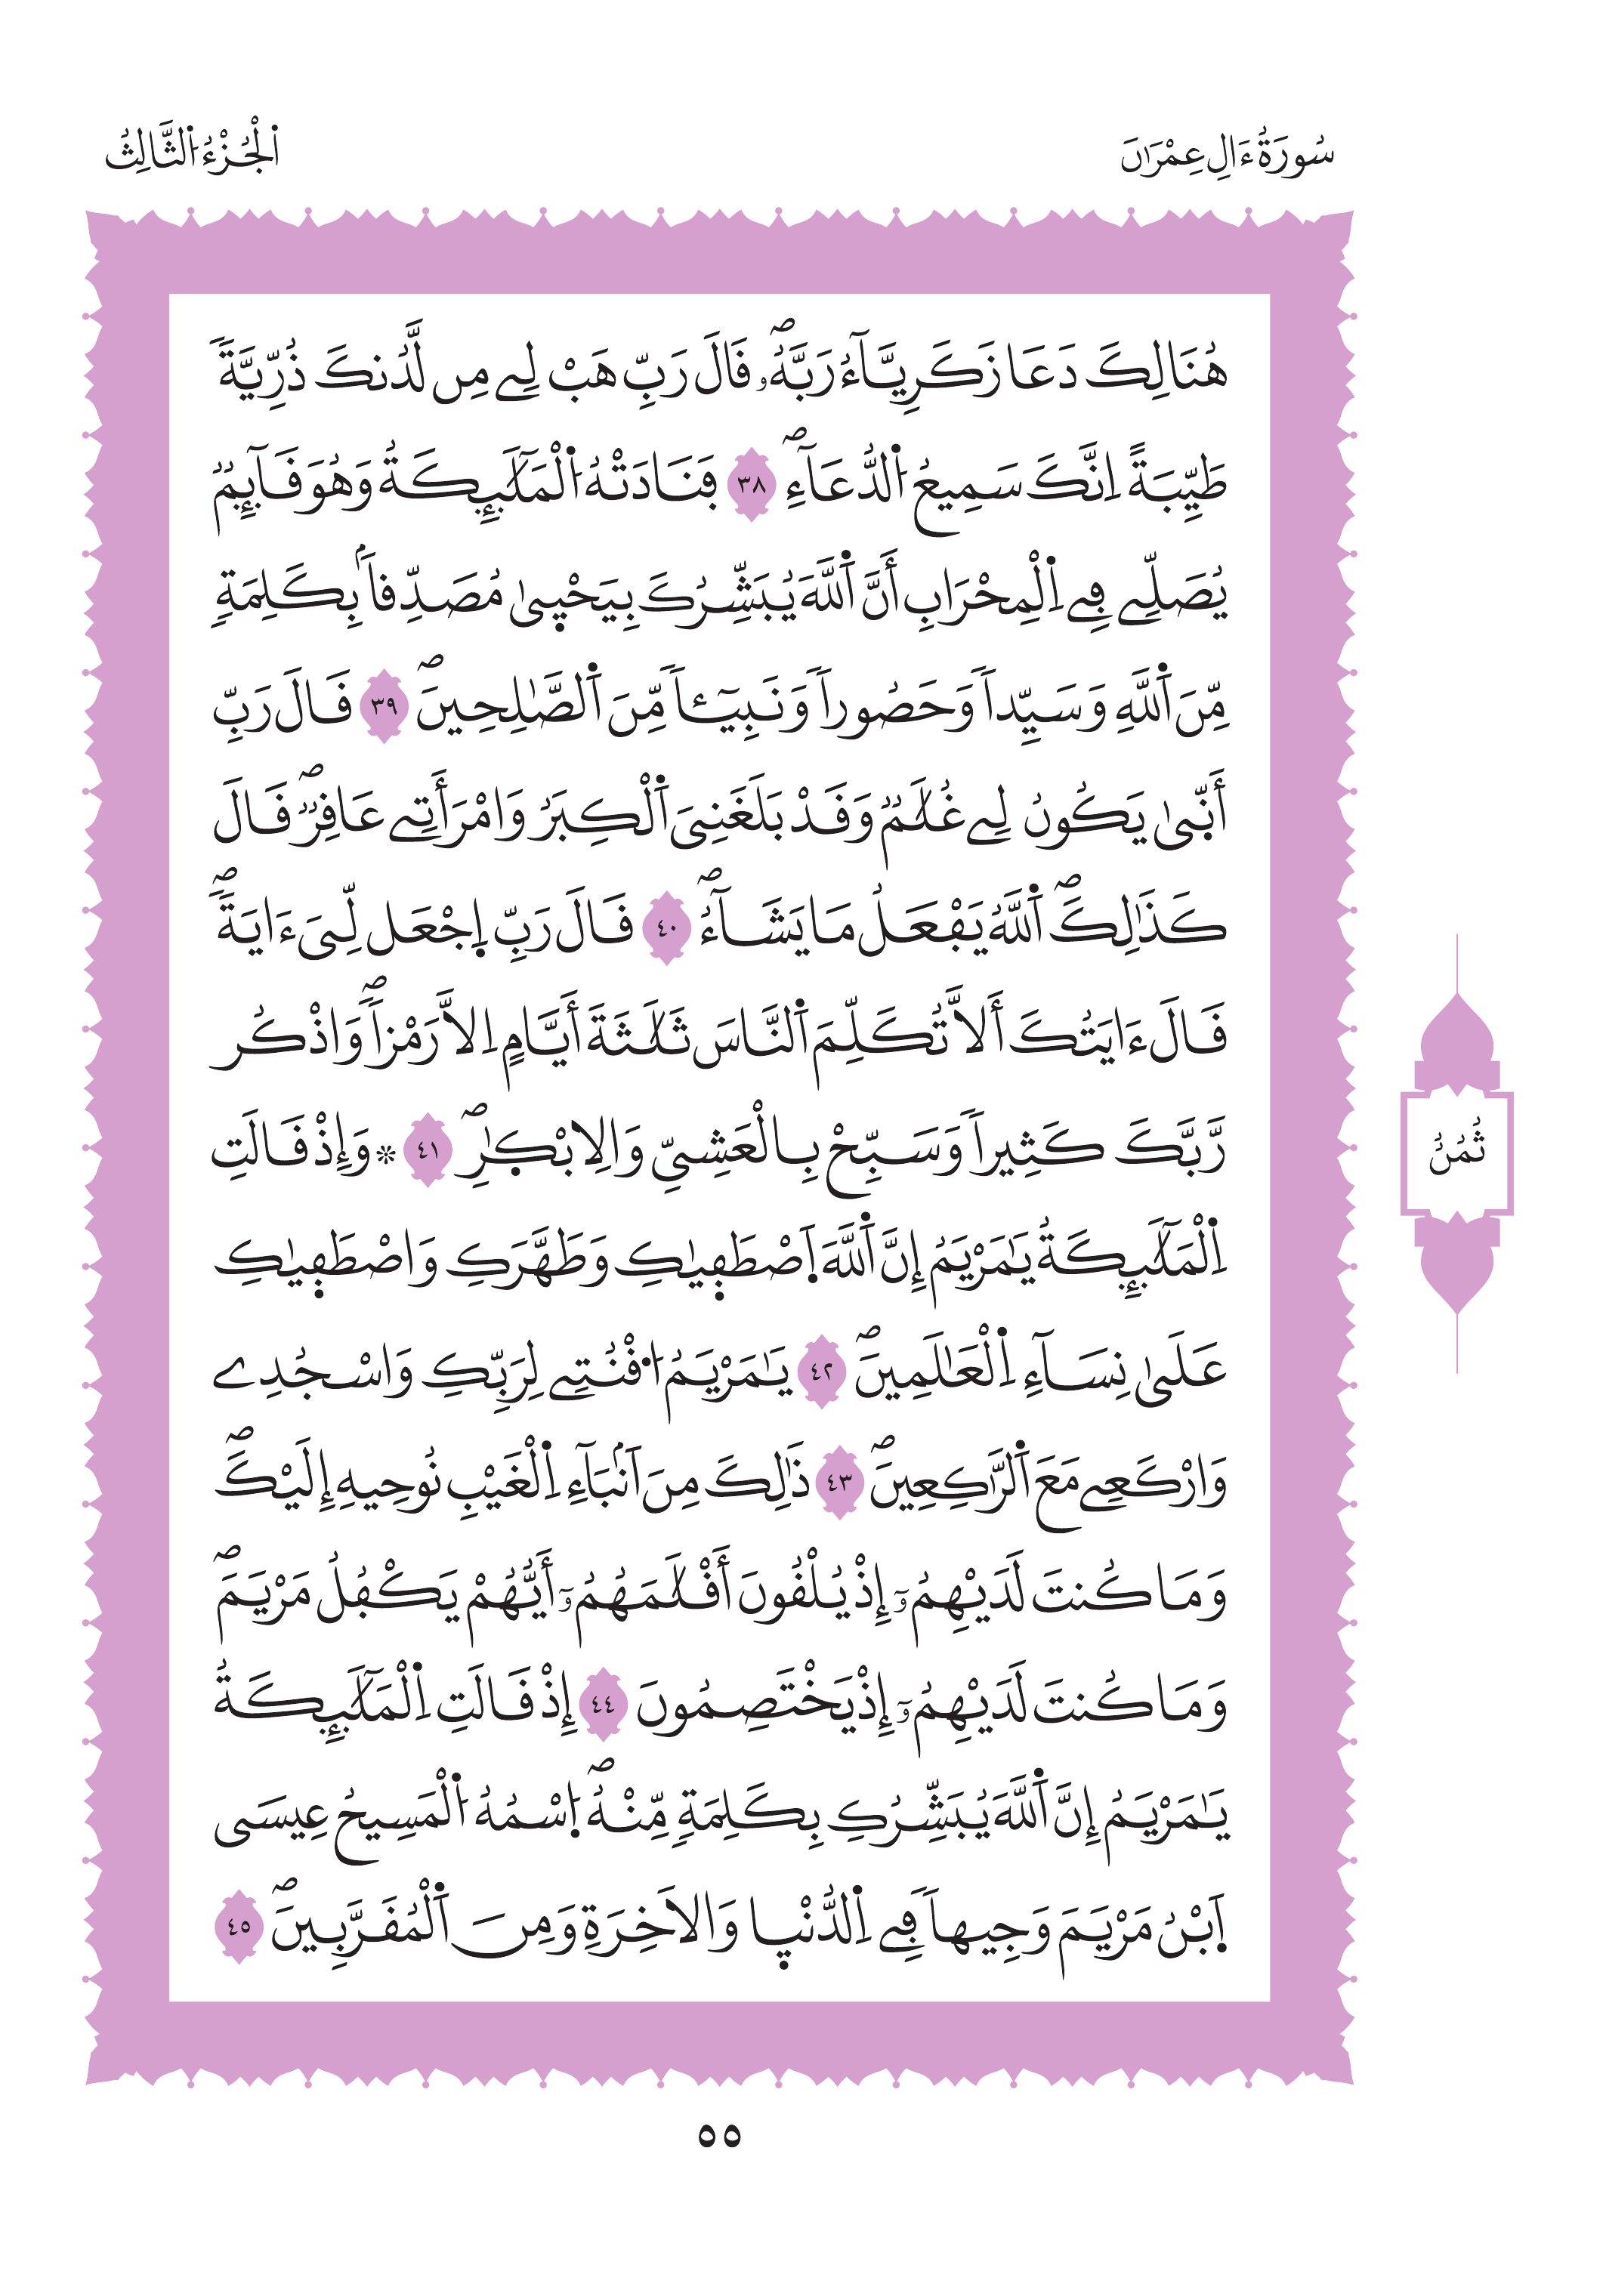 سُورَةُ ءَالِ عِمْرَٰنَ
اَ۬لْجُزْءُ اُ۬لثَّالِثُ
هُنَالِكَ دَعَا زَكَرِيَّآءُ رَبَّهُۥۖ قَالَ رَبِّ هَبْ لِے مِن لَّدُنكَ ذُرِّيَّةٗ
طَيِّبَةً اِنَّكَ سَمِيعُ اُ۬لدُّعَآءِۖ ٣٨ فَنَادَتْهُ اُ۬لْمَلَٰٓئِكَةُ وَهُوَ قَآئِمٞ
يُصَلِّے فِے اِ۬لْمِحْرَابِ أَنَّ اَ۬للَّهَ يُبَشِّرُكَ بِيَحْيۭيٰ مُصَدِّقاَۢ بِكَلِمَةٖ
مِّنَ اَ۬للَّهِ وَسَيِّداٗ وَحَصُوراٗ وَنَبِيٓـٔاٗ مِّنَ اَ۬لصَّٰلِحِينَۖ ٣٩ قَالَ رَبِّ
أَنّۭيٰ يَكُونُ لِے غُلَٰمٞ وَقَدْ بَلَغَنِيَ اَ۬لْكِبَرُ وَامْرَأَتِے عَاقِرٞۖ قَالَ
كَذَٰلِكَۖ اَ۬للَّهُ يَفْعَلُ مَا يَشَآءُۖ ٤٠ قَالَ رَبِّ اِ۪جْعَل لِّيَ ءَايَةٗۖ
قَالَ ءَايَتُكَ أَلَّا تُكَلِّمَ اَ۬لنَّاسَ ثَلَٰثَةَ أَيَّامٍ اِلَّا رَمْزاٗۖ وَاذْكُر
رَّبَّكَ كَثِيراٗ وَسَبِّحْ بِالْعَشِيِّ وَالِابْكٰ۪رِۖ ٤١ ۞ وَإِذْ قَالَتِ
اِ۬لْمَلَٰٓئِكَةُ يَٰمَرْيَمُ إِنَّ اَ۬للَّهَ اَ۪صْطَفۭيٰكِ وَطَهَّرَكِ وَاصْطَفۭيٰكِ
عَلَىٰ نِسَآءِ اِ۬لْعَٰلَمِينَۖ ٤٢ يَٰمَرْيَمُ اُ۟قْنُتِے لِرَبِّكِ وَاسْجُدِے
وَارْكَعِے مَعَ اَ۬لرَّٰكِعِينَۖ ٤٣ ذَٰلِكَ مِنَ اَنۢبَآءِ اِ۬لْغَيْبِ نُوحِيهِ إِلَيْكَۖ
وَمَا كُنتَ لَدَيْهِمُۥٓ إِذْ يُلْقُونَ أَقْلَٰمَهُمُۥٓ أَيُّهُمْ يَكْفُلُ مَرْيَمَۖ
وَمَا كُنتَ لَدَيْهِمُۥٓ إِذْ يَخْتَصِمُونَ ٤٤ إِذْ قَالَتِ اِ۬لْمَلَٰٓئِكَةُ
يَٰمَرْيَمُ إِنَّ اَ۬للَّهَ يُبَشِّرُكِ بِكَلِمَةٖ مِّنْهُۖ اُ۪سْمُهُ اُ۬لْمَسِيحُ عِيسَى
اَ۪بْنُ مَرْيَمَ وَجِيهاٗ فِے اِ۬لدُّنْي۪ا وَالَاخِرَةِ وَمِنَ اَ۬لْمُقَرَّبِينَۖ ٤٥
ثُمُنُ
٥٥